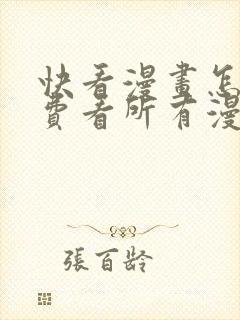 快看漫畫怎
費看所有漫
張百齡